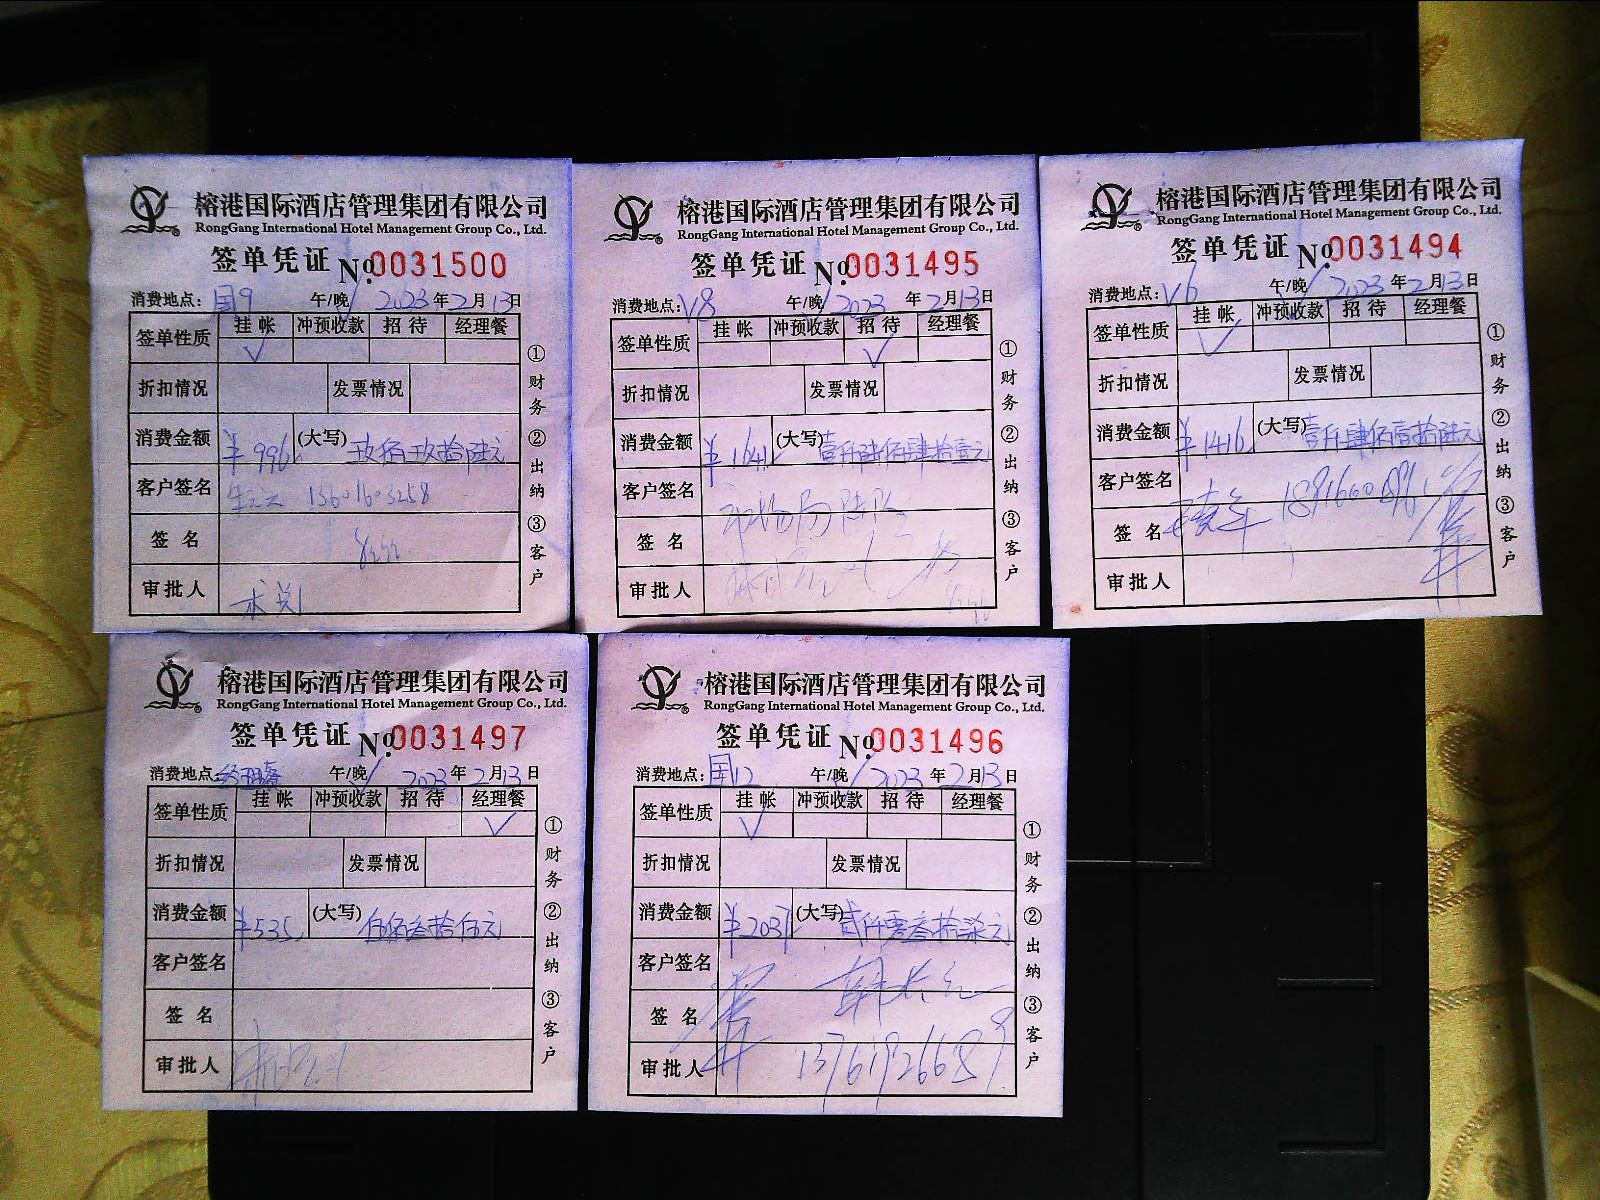 榕港国际酒店管理集团有限公司
RongGang International Hotel Management Group Co., Ltd.
签单凭证 No.0031500
消费地点: 国9 午/晚 2023年2月13日
签单性质 挂帐 冲预收款 招待 经理餐
✓
折扣情况 发票情况
消费金额 ¥996 (大写) 玖佰玖拾陆元
客户签名 13601603258
签名
审批人
①财务 ②出纳 ③客户
榕港国际酒店管理集团有限公司
RongGang International Hotel Management Group Co., Ltd.
签单凭证 No.0031495
消费地点: V8 午/晚 2023年2月13日
签单性质 挂帐 冲预收款 招待 经理餐
✓
折扣情况 发票情况
消费金额 ¥1641 (大写) 壹仟陆佰肆拾壹元
客户签名
签名
审批人
①财务 ②出纳 ③客户
榕港国际酒店管理集团有限公司
RongGang International Hotel Management Group Co., Ltd.
签单凭证 No.0031494
消费地点: V6 午/晚 2023年2月13日
签单性质 挂帐 冲预收款 招待 经理餐
✓
折扣情况 发票情况
消费金额 ¥1416 (大写) 壹仟肆佰壹拾陆元
客户签名
签名
审批人
①财务 ②出纳 ③客户
榕港国际酒店管理集团有限公司
RongGang International Hotel Management Group Co., Ltd.
签单凭证 No.0031497
消费地点: 午/晚 2023年2月13日
签单性质 挂帐 冲预收款 招待 经理餐
✓
折扣情况 发票情况
消费金额 ¥535 (大写) 伍佰叁拾伍元
客户签名
签名
审批人
①财务 ②出纳 ③客户
榕港国际酒店管理集团有限公司
RongGang International Hotel Management Group Co., Ltd.
签单凭证 No.0031496
消费地点: 国12 午/晚 2023年2月13日
签单性质 挂帐 冲预收款 招待 经理餐
✓
折扣情况 发票情况
消费金额 ¥2037 (大写) 贰仟零叁拾柒元
客户签名
签名
审批人 13761926689
①财务 ②出纳 ③客户